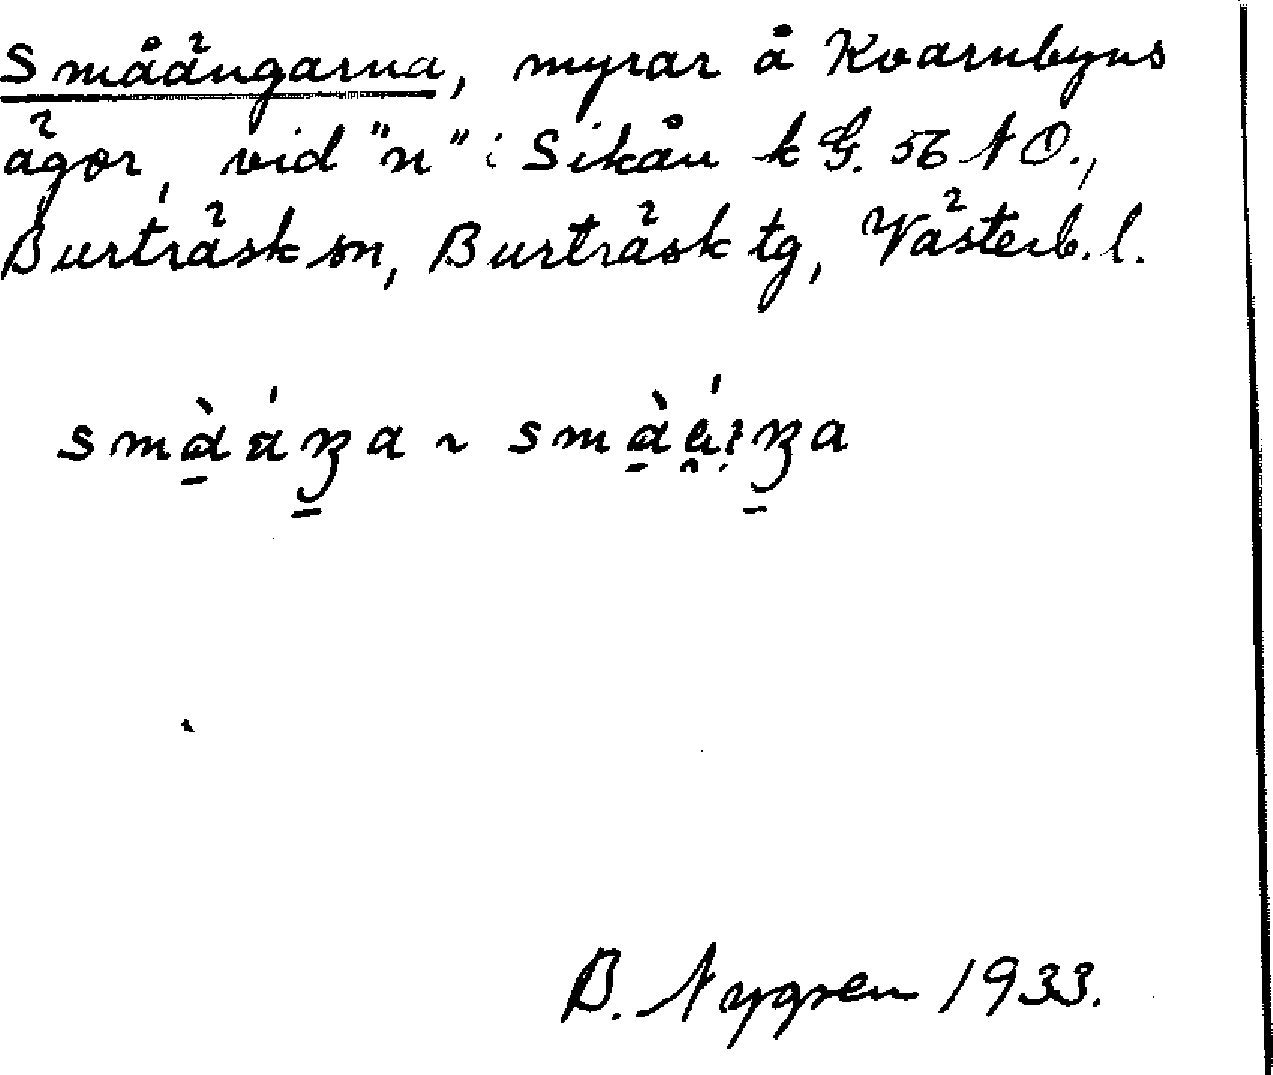 Småängarna, myrar å Kvarnbyns
ägor, vid "n" i Sikån k G. 56 N O.,
Burträsk sn, Burträsk tg, Västerb. l.
B. Nygren 1933.